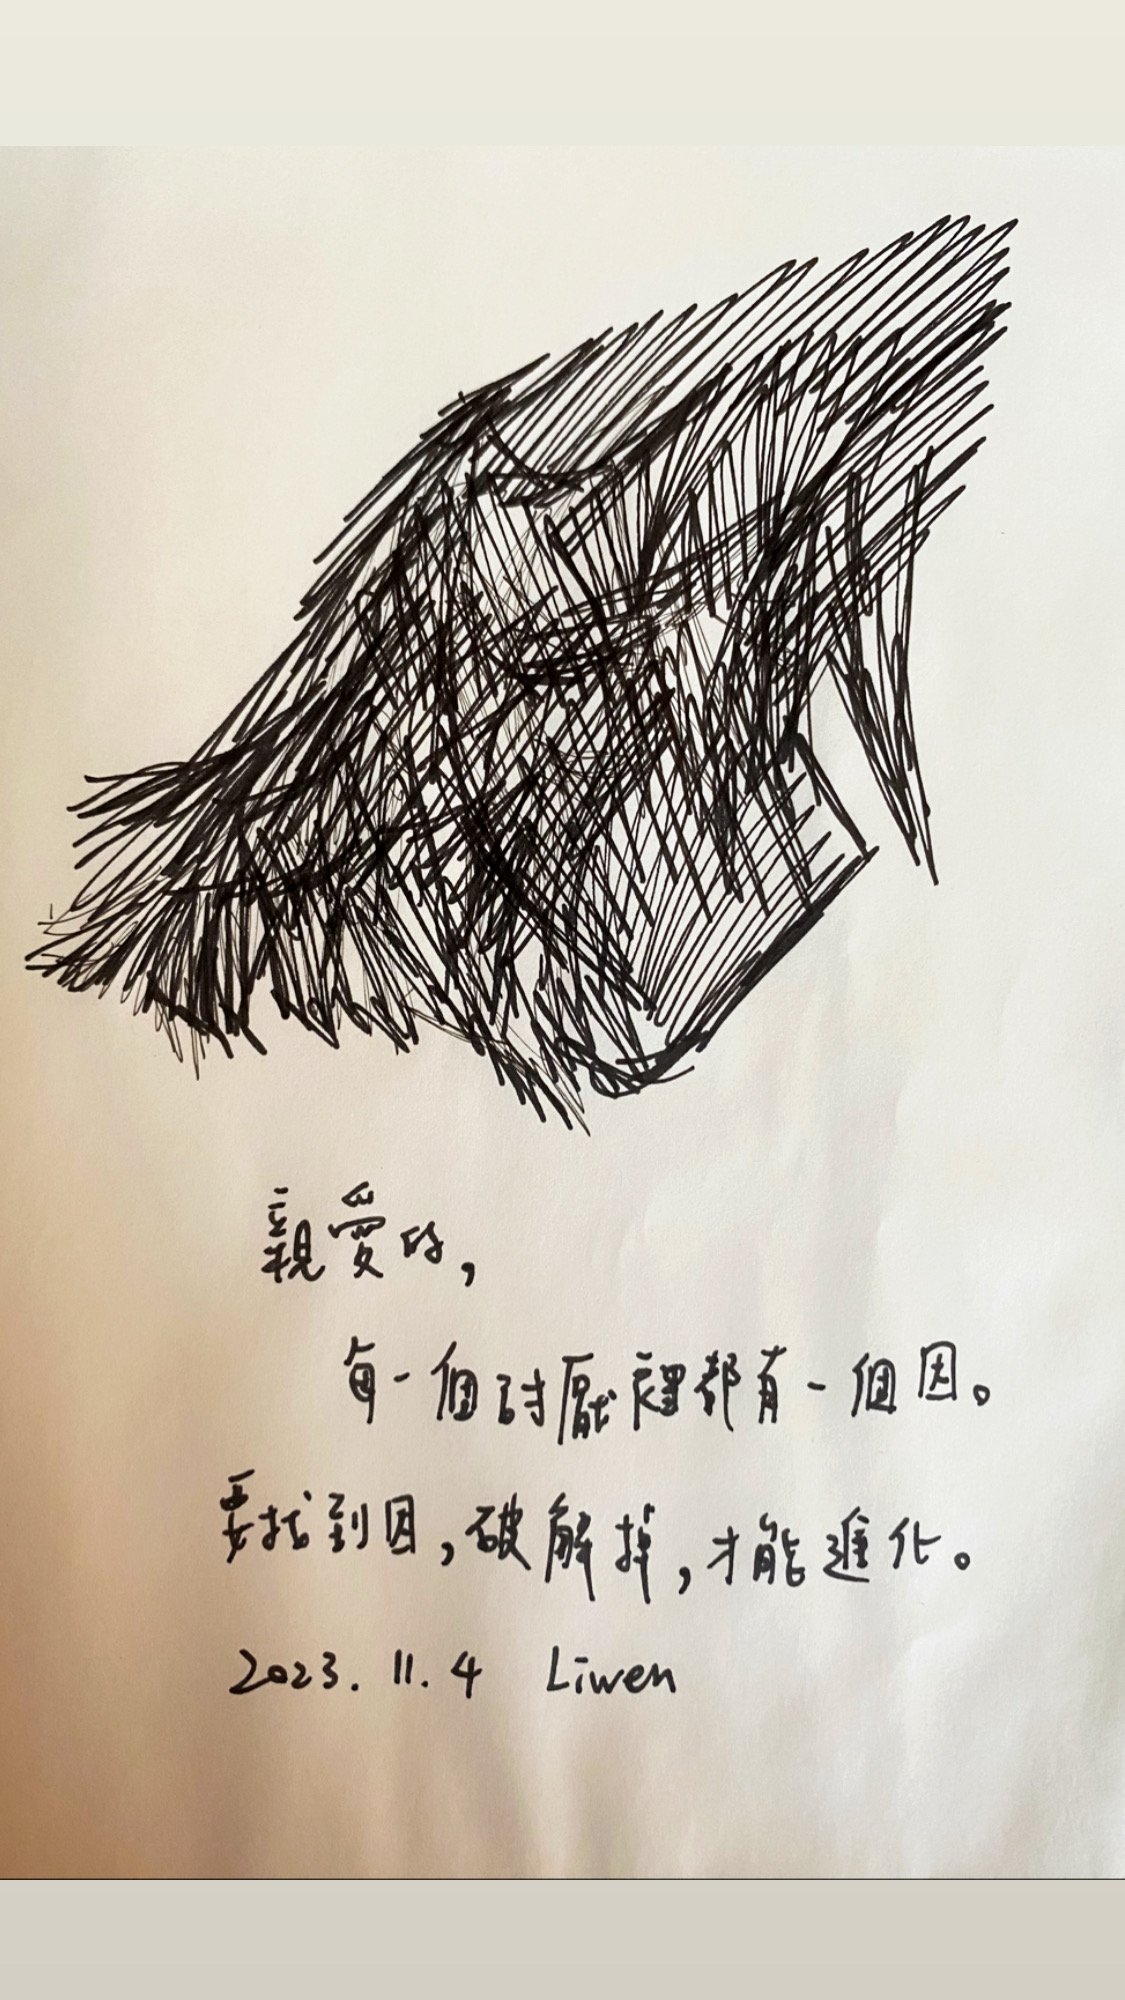 親愛的，
每一個討厭裡都有一個因。
要找到因，破解掉，才能進化。
2023.11.4 Liwen